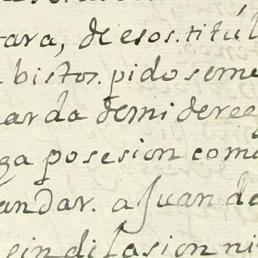 tara, de esos. titúl
bistos. pido seme
arda demi deree
ga posesion com
andar. a Juan de
in dilasion ni